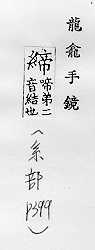 龍龕手鏡
締啼弟二
音結也
(糸部
p399)